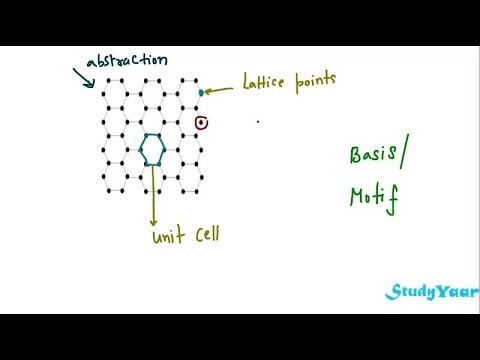 abstraction
Lattice points
Basis/
Motif
unit cell
StudyYaar